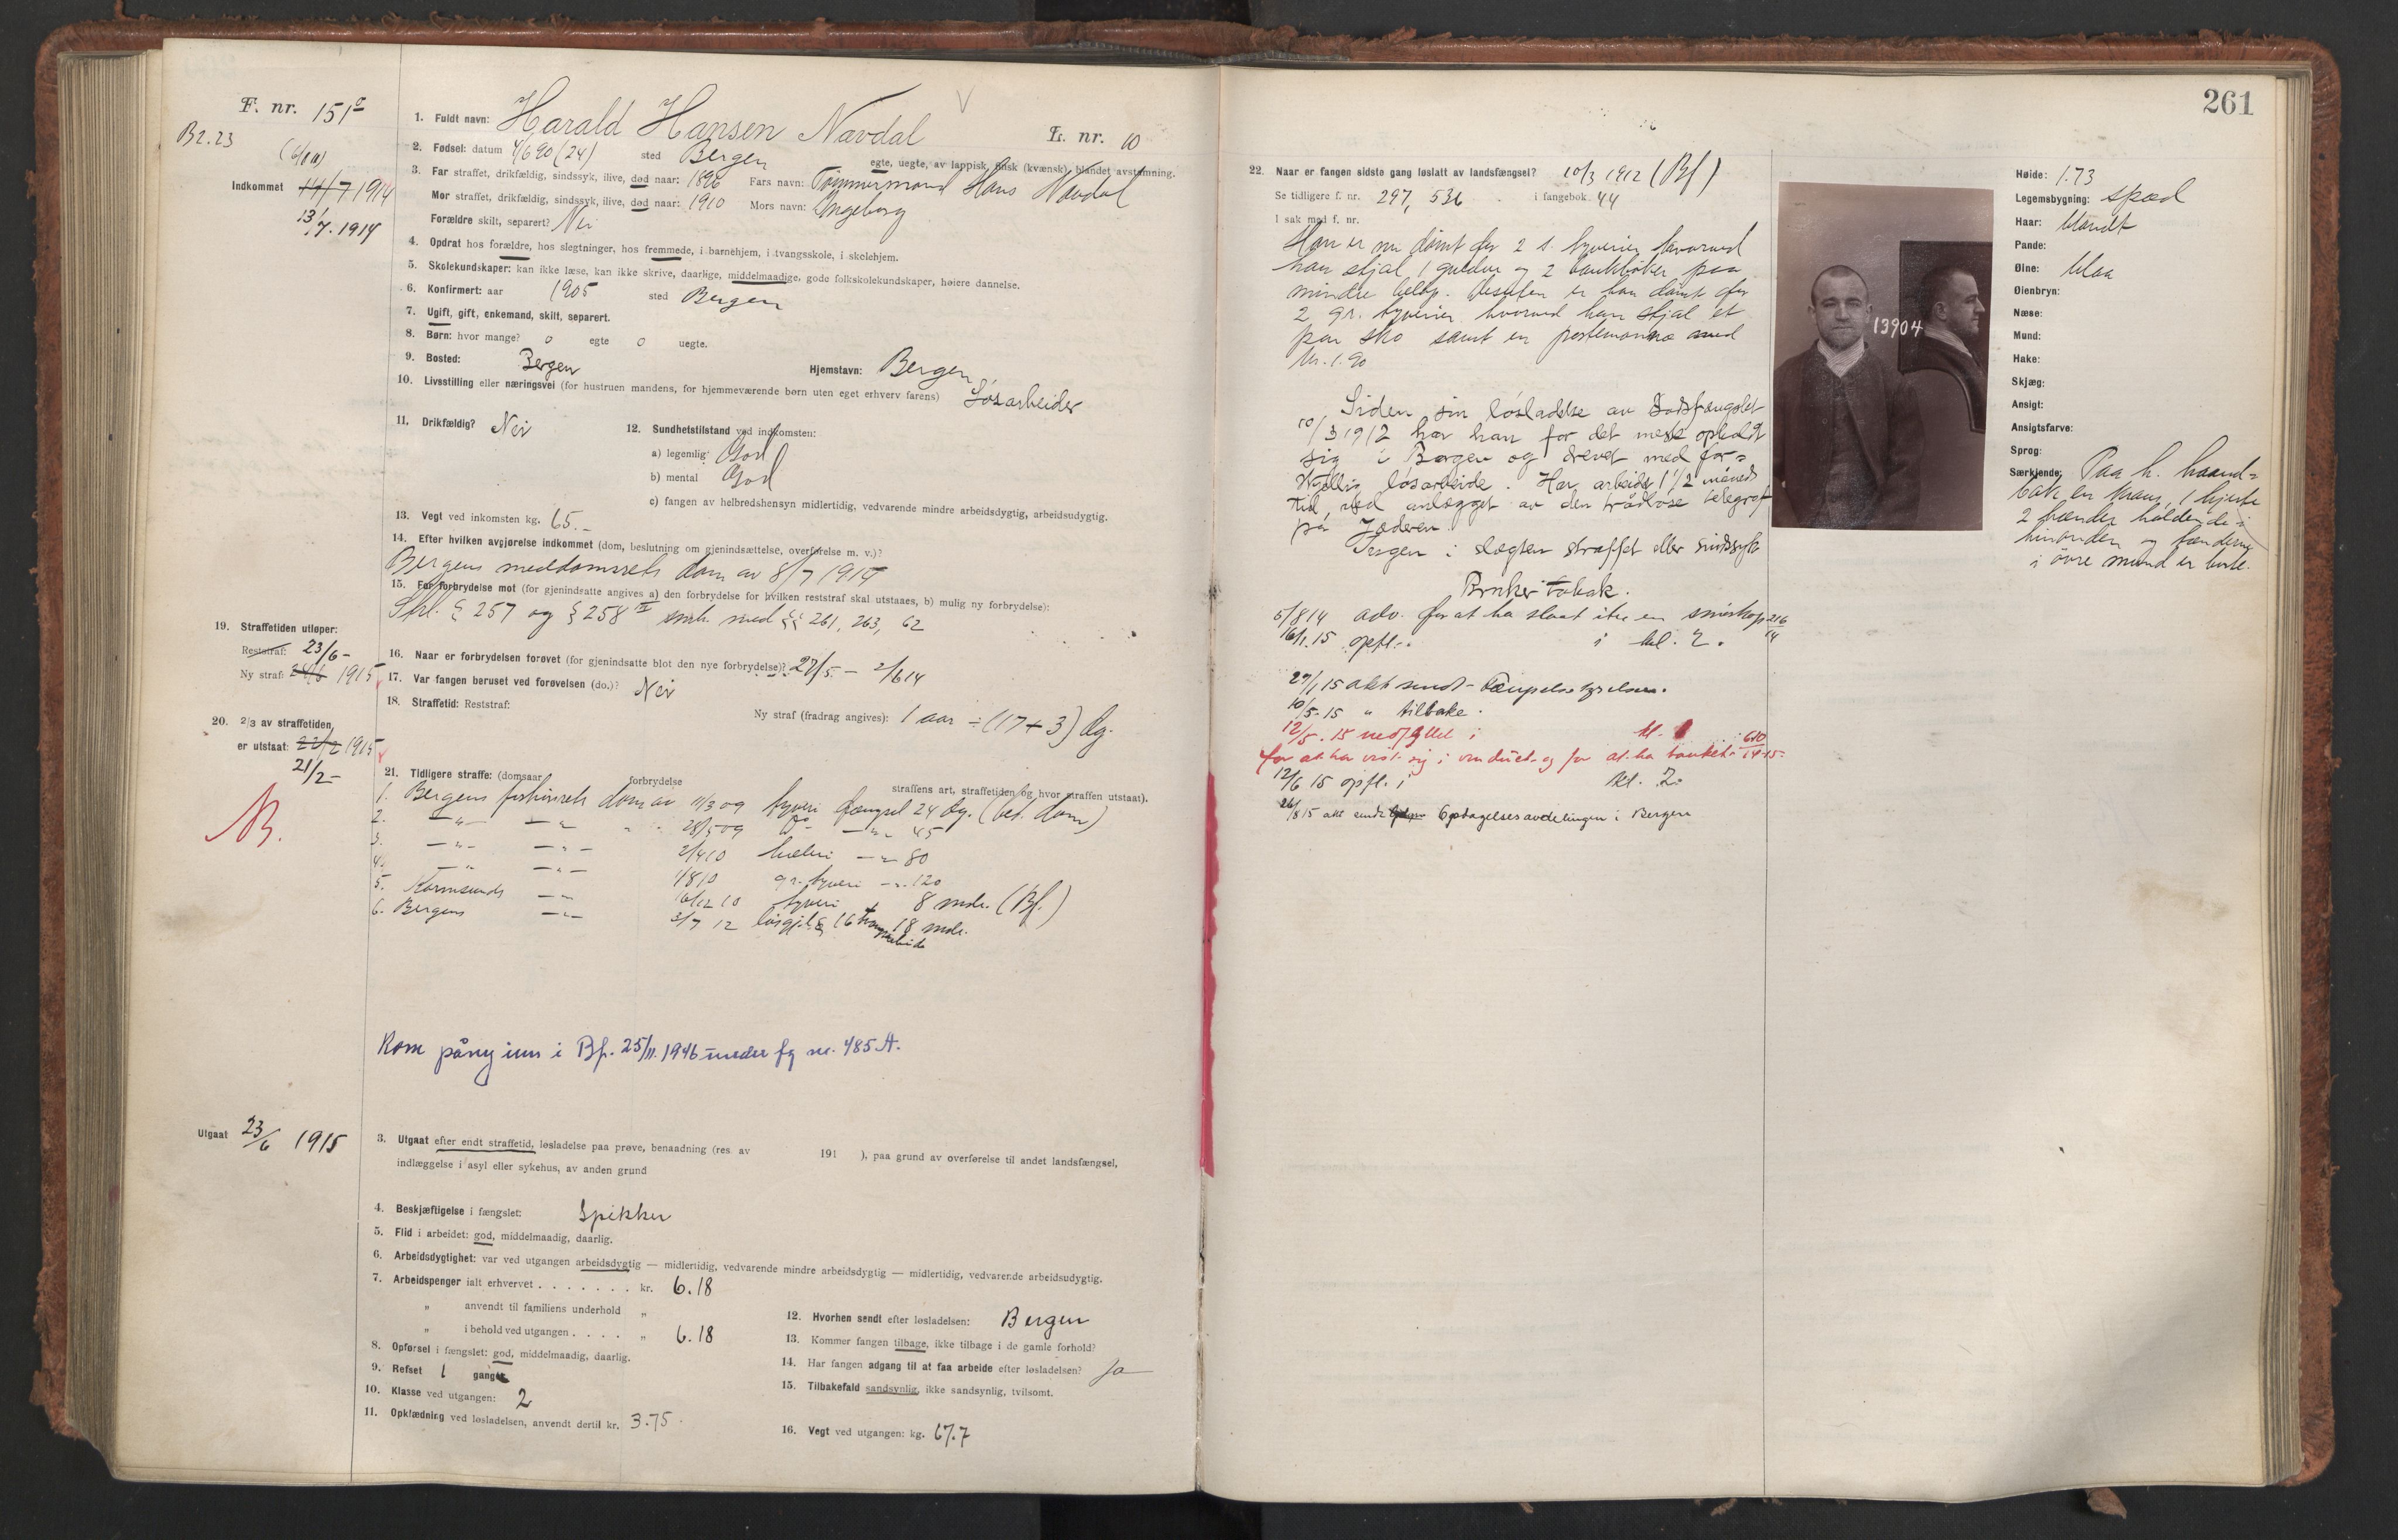 261
F. nr. 151
B2.23
Indkommet 14/7 1914
13/7. 1914
1. Fuldt navn: Harald Hansen Navdal
L. nr. 10
2. Fødsel: datum 4/6 90 (24) sted Bergen
egte, uegte, av lappisk, finsk (kvænsk), blandet avstamning.
3. Far straffet, drikfældig, sindssyk, ilive, død naar: 1896 Fars navn: Tømmermand Hans Navdal
Mor straffet, drikfældig, sindssyk, ilive, død naar: 1910 Mors navn: Ingeborg
Forældre skilt, separert? Nei
4. Opdrat hos forældre, hos slegtninger, hos fremmede, i barnehjem, i tvangsskole, i skolehjem.
5. Skolekundskaper: kan ikke læse, kan ikke skrive, daarlige, middelmaadige, gode folkskolekundskaper, høiere dannelse.
6. Konfirmert: aar 1905 sted Bergen
7. Ugift, gift, enkemand, skilt, separert.
8. Børn: hvor mange? 0 egte 0 uegte.
9. Bosted: Bergen Hjemstavn: Bergen
10. Livsstilling eller næringsvei (for hustruen mandens, for hjemmeværende børn uten eget erhverv farens) Løsarbeider
11. Drikfældig? Nei
12. Sundhetstilstand ved indkomsten:
a) legemlig: God
b) mental God
c) fangen av helbredshensyn midlertidig, vedvarende mindre arbeidsdygtig, arbeidsudygtig.
13. Vegt ved inkomsten kg. 65.-
14. Efter hvilken avgjørelse indkommet (dom, beslutning om gjenindsættelse, overførelse m. v.)?
Bergens meddomsrets dom av 8/7 1914
15. For forbrydelse mot (for gjenindsatte angives a) den forbrydelse for hvilken reststraf skal utstaaes, b) mulig ny forbrydelse):
Strl. § 257 og § 258 smh. med §§ 261, 263, 62
16. Naar er forbrydelsen forøvet (for gjenindsatte blot den nye forbrydelse)? 27/5 - 2/6 14
17. Var fangen beruset ved forøvelsen (do.)? Nei
18. Straffetid: Reststraf:
Ny straf (fradrag angives): 1 aar ÷ (17+3) dg.
19. Straffetiden utløper:
Reststraf: 23/6 -
Ny straf: 24/6 1915
20. 2/3 av straffetiden
er utstaat: 22/2 1915
21/2 -
21. Tidligere straffe: (domsaar forbrydelse straffens art, straffetiden og hvor straffen utstaat).
1. Bergens forhørsrets dom av 11/3 09 tyveri fængsel 24 dg. (bet. dom)
2. -"- -"- 28/5 09 do -"- 45
3. -"- -"- 2/4 10 hæleri -"- 80
4. -"- -"- 1/8 10 gr. tyveri -"- 120
5. Karmsunds -"- 16/12 10 tyveri 8 mdr. (Bf.)
6. Bergens -"- 3/7 12 løsgjl. § 16 tvangsarbeide 18 mdr.
Kom påny inn i Bf. 25/11. 1946 under fg nr. 485 A.
Utgaat 23/6 1915
3. Utgaat efter endt straffetid, løsladelse paa prøve, benaadning (res. av 191 ), paa grund av overførelse til andet landsfængsel,
indlæggelse i asyl eller sykehus, av anden grund
4. Beskjæftigelse i fængslet: Spikker
5. Flid i arbeidet: god, middelmaadig, daarlig.
6. Arbeidsdygtighet: var ved utgangen arbeidsdygtig — midlertidig, vedvarende mindre arbeidsdygtig — midlertidig, vedvarende arbeidsudygtig.
7. Arbeidspenger ialt erhvervet . . . . . . . kr. 6.18
" anvendt til familiens underhold "
" i behold ved utgangen . . . . " 6.18
8. Opførsel i fængslet: god, middelmaadig, daarlig.
9. Refset 1 gang
10. Klasse ved utgangen: 2
11. Opklædning ved løsladelsen, anvendt dertil kr. 3.75.
12. Hvorhen sendt efter løsladelsen: Bergen
13. Kommer fangen tilbage, ikke tilbage i de gamle forhold?
14. Har fangen adgang til at faa arbeide efter løsladelsen? Ja
15. Tilbakefald sandsynlig, ikke sandsynlig, tvilsomt.
16. Vegt ved utgangen: kg. 67.7
22. Naar er fangen sidste gang løslatt av landsfængsel? 10/3 1912 (Bf)
Se tidligere f. nr. 297, 536 i fangebok 44
I sak med f. nr.
Han er nu dømt for 2 s. tyverier hvorved
han stjal 1 guldur og 2 bankbøker paa
mindre beløp. Desuten er han dømt for
2 gr. tyverier hvorved han stjal et
par sko samt en portemonnæ med
kr. 1.90
Siden sin løsladelse av Bodsfængslet
10/3 1912 har han for det meste opholdt
sig i Bergen og drevet med for-
skjellig løsarbeide. Har arbeidet 1 1/2 måneds
tid ved anlægget av den trådløse telegraf
på Jæderen.
Ingen i slægten straffet eller sindssyk
Bruker tobak.
5/8 14 adv. for at ha slaat itu en smørkop 216/14
16/1. 15 opfl. i kl. 2.
29/1 15 akt sendt Fængselsstyrelsen.
10/5-15 " tilbake.
12/5. 15 nedflyttet i kl. 1 610/14-15
for at ha vist sig i vinduet og for at ha banket
12/6 15 opfl. i kl. 2.
26/8 15 akt sendt Optagelsesavdelingen i Bergen
13904
Høide: 1.73
Legemsbygning: spæd
Haar: blondt
Pande:
Øine: blaa
Øienbryn:
Næse:
Mund:
Hake:
Skjæg:
Ansigt:
Ansigtsfarve:
Sprog:
Særkjende: Paa h. haand-
bak en krans, 1 hjerte
2 hænder holdende i
hinanden og tænderne
i øvre mund er borte.